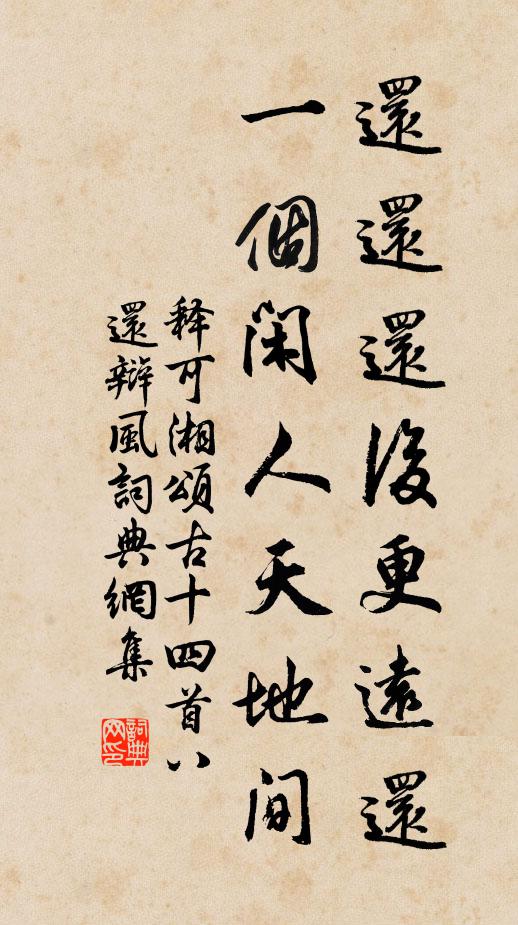 還還還後更遠還
一個閑人天地間
释可湘頌古十四首八
還辯風詞典網集
詞典网印